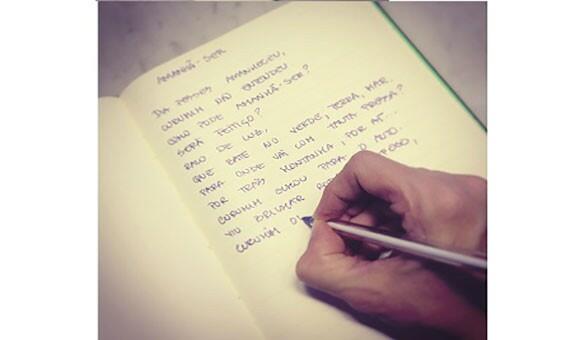 AMANHÃ-SER
DIA DESSES AMANHECEU,
CURUMIM NÃO ENTENDEU
COMO PODE AMANHÃ-SER?
SERÁ FEITIÇO?
RAIO DE LUZ,
QUE BATE NO VERDE, TERRA, MAR.
PARA ONDE VÃO COM TANTA PRESSA?
POR TRÁS MONTANHA, POR AÍ...
CURUMIM OLHOU PARA O ALTO.
VIU BRILHAR FOGO,
CURUMIM O